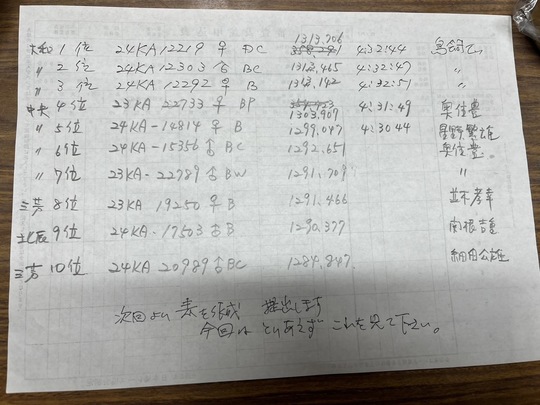 大和 1位 24KA 12219 ♀ DC 1313,706 4:32:44 鳥飼
〃 2位 24KA 12303 ♂ BC 1313,465 4:32:47 〃
〃 3位 24KA 12292 ♀ B 1313,142 4:32:51 〃
中央 4位 23KA 22733 ♀ BP 1303,909 4:31:49 奥住豊
〃 5位 24KA-14814 ♀ B 1299,047 4:30 44 星野繁雄
〃 6位 24KA-15356 ♂ BC 1292,651 奥住豊。
〃 7位 23KA-22789 ♂ BW 1291,709 〃
三芳 8位 23KA 19250 ♀ B 1291,466 並木孝幸
北辰 9位 24KA-17503 ♂ B 1290,377
三芳 10位 24KA 20989 ♂ BC 1284,847.
次回より 表を作成 提出します
今回は とりあえず これを見て下さい。